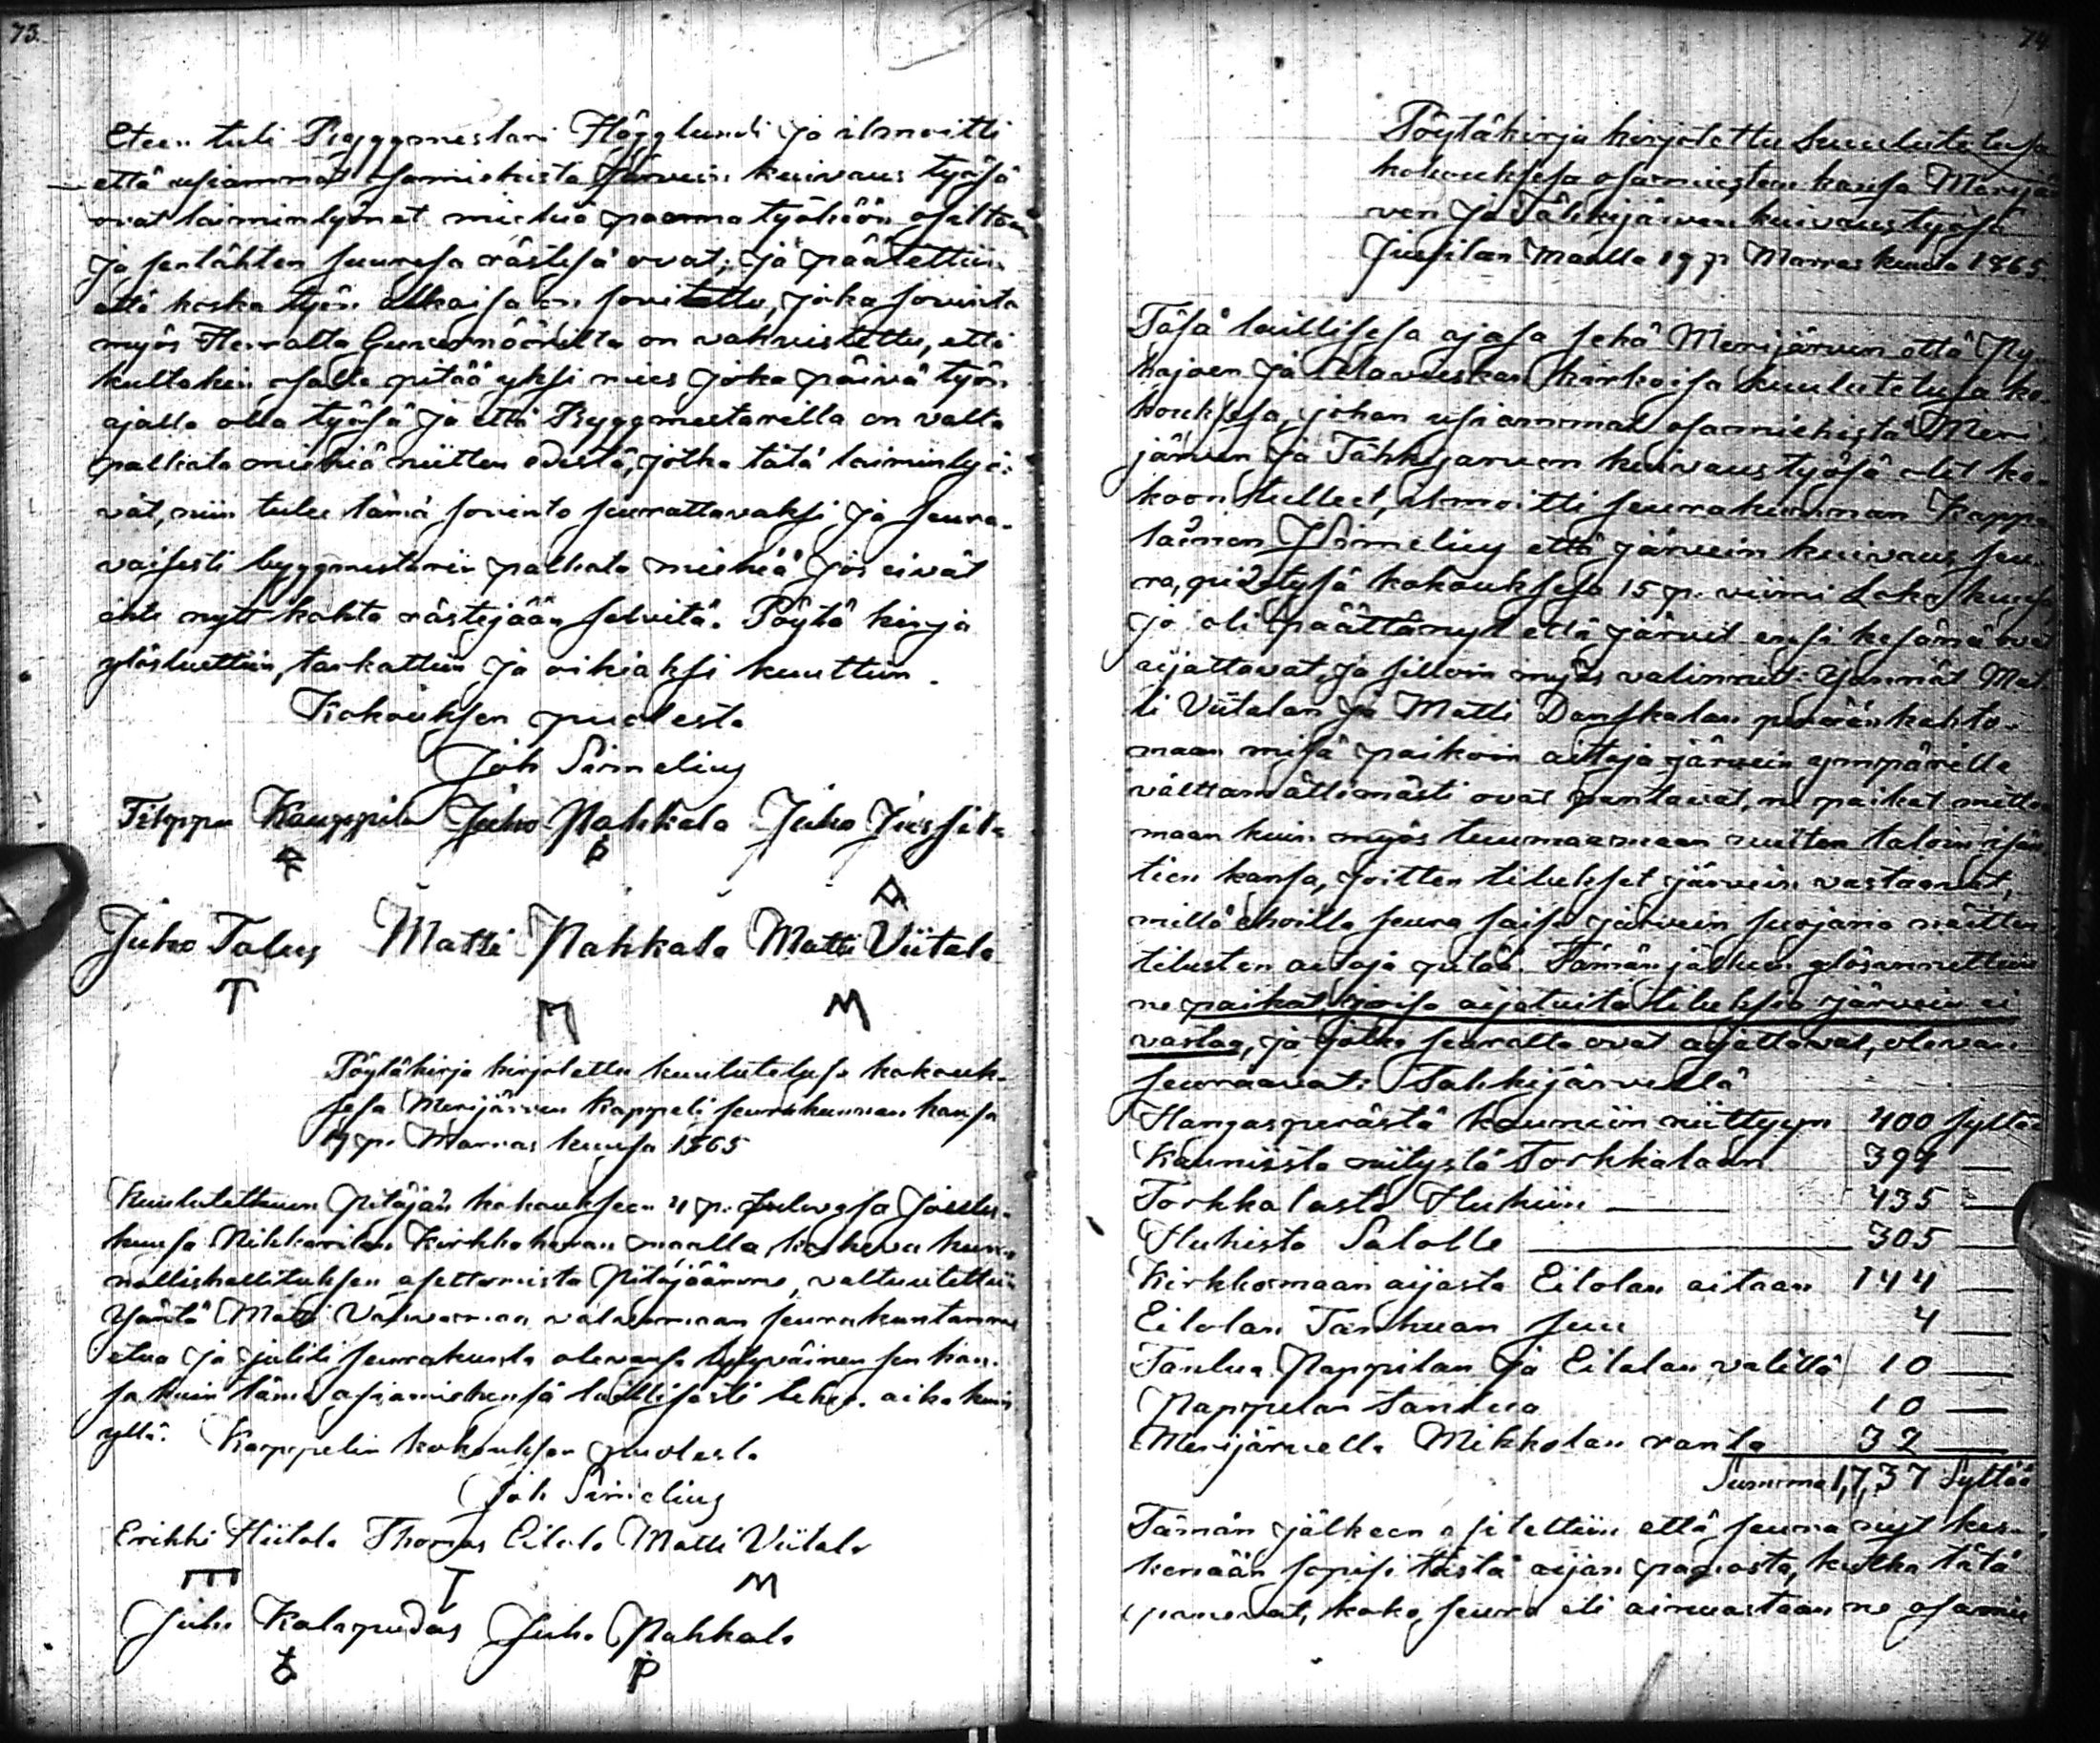 73.
Eteen tuli Byggmestari Hägglundi ja ilmoitti
että usiammat osamiehistä järvein kuivaus työsä
ovat laiminlyönet miehiä panna työhöön osaltans
ja sentähten suuresa rästisä ovat; ja päätettiin
että koska työn alkaisa on sovitettu, joka sovinto
myös Herralta Guvernööriltä on vahvistettu, että
kultakin osalta pitää yksi mies joka päivä työn
ajalla olla työsä ja että Byggmestarilla on valta
palkata miehiä niitten edestä, jotka tätä laiminlyö-
vät, niin tulee tämä sovinto seurattavaksi ja seura-
vaisesti byggmestarin palkata miehiä jos eivät
ehk nytt kohta rästejään selvitä. Pöytä kirja
ylösluettiin, tarkattiin ja oikiaksi kuuttiin.
Kokouksen puolesta
Joh Sirnelius
Filppu Kauppila Juho Pahkala Juho Juusila
Juho Talus Matti Pahkala Matti Viitala
T M M
Pöytäkirja kirjotettu kuulutetusa kokouk-
sesa Merijärven Kappeli seurakunnan kansa
19 p. Marras kuusa 1865
Kuulutettuun Pitäjän kokoukseen 4 p. tulevasa Joulu-
kuusa Nikkarilan Kirkkoherran maalla, koskeva kun-
nallishallituksen asettamista Pitäjäämme, valtuutettiin
Isäntä Matti valvomaan seurakuntamme
etua ja jätiti seurakunta olevansa tytyväinen sen kan-
sa kuin tämä asiamiehensä laillisesti tekee. aika kuin
yllä. Kappelin kokouksen puolesta
Joh Sirnelius
Erikki Hiitola Thomas Eilola Matti Viitala
T M
Juho Kalapudas Juho Pahkala
P
74
Pöytäkirja kirjotettu kuulutetusa
kokouksesa osamiesten kansa Merijär
ven ja Tähkijärven kuivaustyösä
Juusilan Maalla 19 p Marras kuuta 1865.
Täsä laillisesa ajasa sekä Merijärven että Py-
häjoen ja Alavieskan kirkoisa kuulutetusa ko-
kouksesa, johon usiammat osamiehistä Meri
järven ja Tähkijärven kuivaustyösä olit ko-
koon tulleet, ilmoitti seurakunnan Kappa
lainen Sirnelius että järvein kuivaus seu-
ra, pidetysä kokouksesa 15 p. viimi Loka kuusa
jo oli päättänyt että järvet ensi kesänä ovat
aijattavat, ja silloin myös valinnut: Isännät Mat
ti Viitalan ja Matti Danskalan perään kahto-
maan misä paikoin aitoja järvein ympärille
välttämättömästi ovat pantavat, ne paikat mittaa
maan kuin myös tuumaamaan niitten taloin isän
tien kansa, joitten tilukset järvein vastaavat,
millä ehoilla seura saisi järvein suojana näitten
tilusten aitoja pitää. Tämän jälkeen ylösannettiin
ne paikat, joisa aijatuita tiluksia järvein ei
vastaa, ja jotka seuralta ovat aijattavat, olevan
seuraavat: Tähkijärvellä
Hangasperästä kauniin niittyyn 400 syltää
Kauniista niitystä Torkkalaan 397 —
Torkkalasta Huhiin — 435 —
Huhista Salolle — 305 —
Kirkkomaan aijasta Eilolan aitaan 144 —
Eilolan Tanhuan suu 4 —
Tanhua Pappilan ja Eilolan välillä 10 —
Pappilan tanhua 10 —
Merijärvellä Mikkolan ranta 32 —
Summa 1,737 Syltää
Tämän jälkeen esiteltiin että seura nyt kes-
kenään sopisi tästä aijan panosta, kutka tätä
panevat, koko seura eli ainoastaan ne osamie